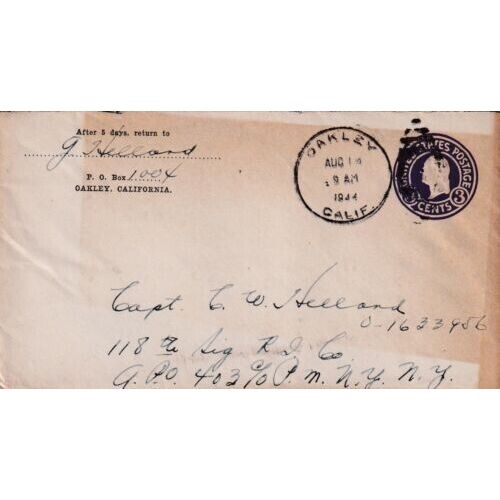 After 5 days, return to
G Helland
P. O. Box 1004
OAKLEY, CALIFORNIA.
OAKLEY
AUG 14
9 AM
1944
CALIF.
UNITED STATES POSTAGE
3 CENTS 3
Capt. C. W. Helland
O-1633956
118 th Sig R I Co
A.P.O. 403 c/o P.m. N.Y. N.Y.